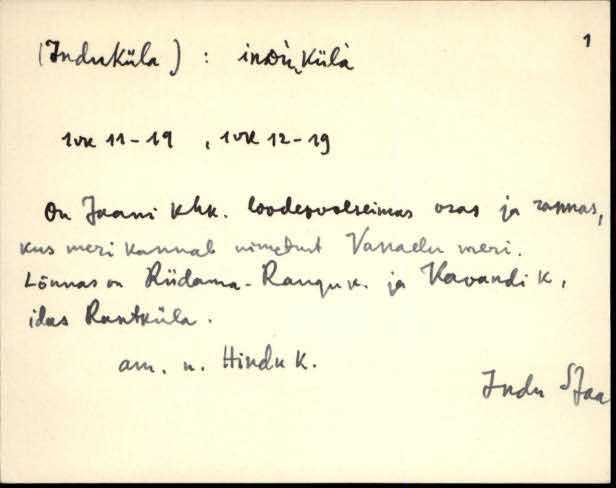 1
(Induküla) : inDùˎkülà
1vk 11-19 , 1vk 12-19
On Jaani khk. loodepoolseimas osas ja rannas,
kus meri kannab nimetust Vassaelu meri.
Lõunas on Riidama-Rangu k. ja Kavandi k,
idas Rantküla.
am. n. Hindu k.
Indu SJaa